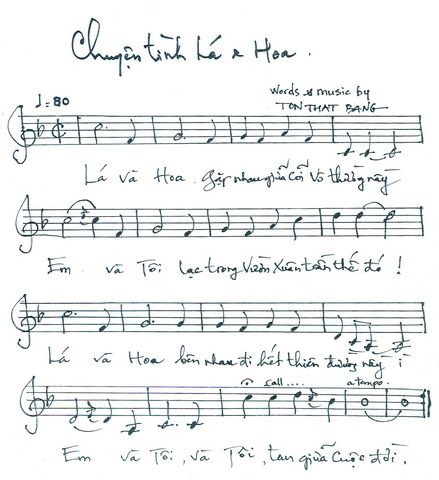 Chuyện tình Lá & Hoa.
♩=80
Words & music by
TON THAT BANG
Lá và Hoa. gặp nhau giữa Cõi Vô thường này
Em và Tôi lạc trong Vườn Xuân trần thế đó!
Lá và Hoa bên nhau đi hết thiên đường này
call....
a tempo
Em và Tôi, và Tôi, tan giữa Cuộc đời.